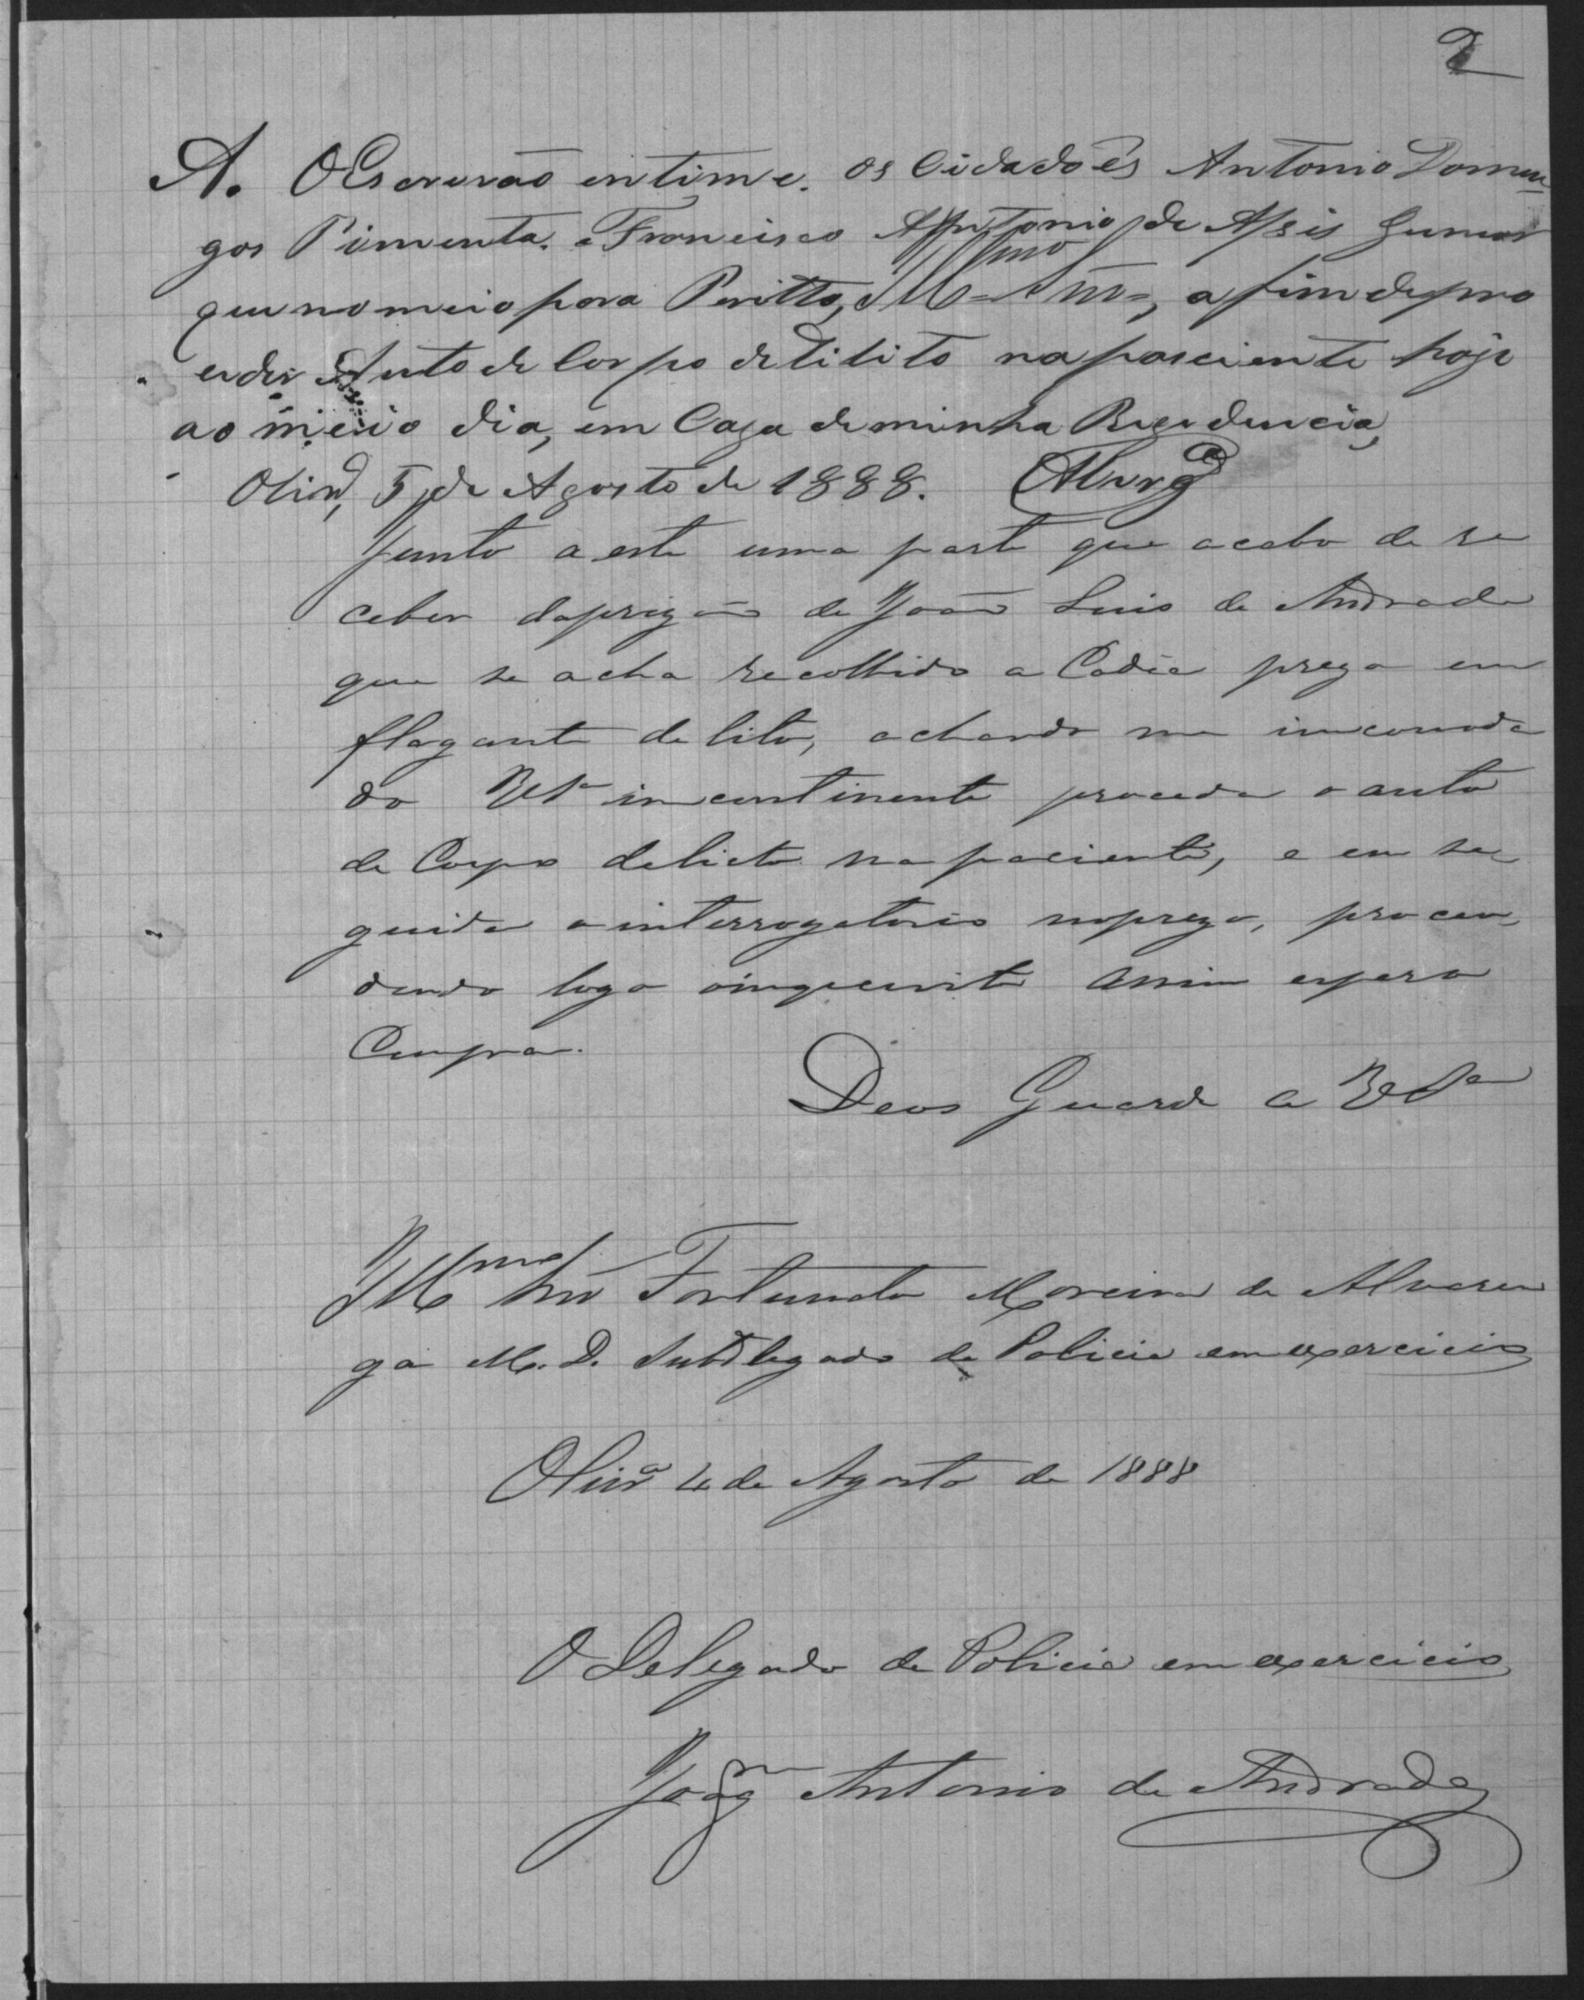 2
A. O Escrivão intime os Cidadoẽs Antonio Domin
gos Pimenta e Francisco Antonio de Assis
que nomeio para Perittos, a fim de pro
ceder Auto de Corpo de dilito na pasciente hoje
ao meio dia, em Caza de minha Rezidencia,
Olivrª, 5 de Agosto de 1888. Alvrgª
Junto a este uma parte que acabo de re
ceber da prizão de João Luis de Andrade
que se acha recolhido a Cadia prezo em
flagante delito, achando me incomoda
do VSª incontinente proceda o auto
de Corpo delicto na paciente, e em se
guida o interrogatorio no prezo, procen
dendo logo o inquerito assim espero
Cumpra.
Deos Guarde a VSª
Illmo Snr Fortunato Moreira de Alvaren
ga M. D. Subdelegado de Policia em exercicio
Olivrª 4 de Agosto de 1888
O Delegado de Policia em exercicio
Joaqm Antonio de Andrade